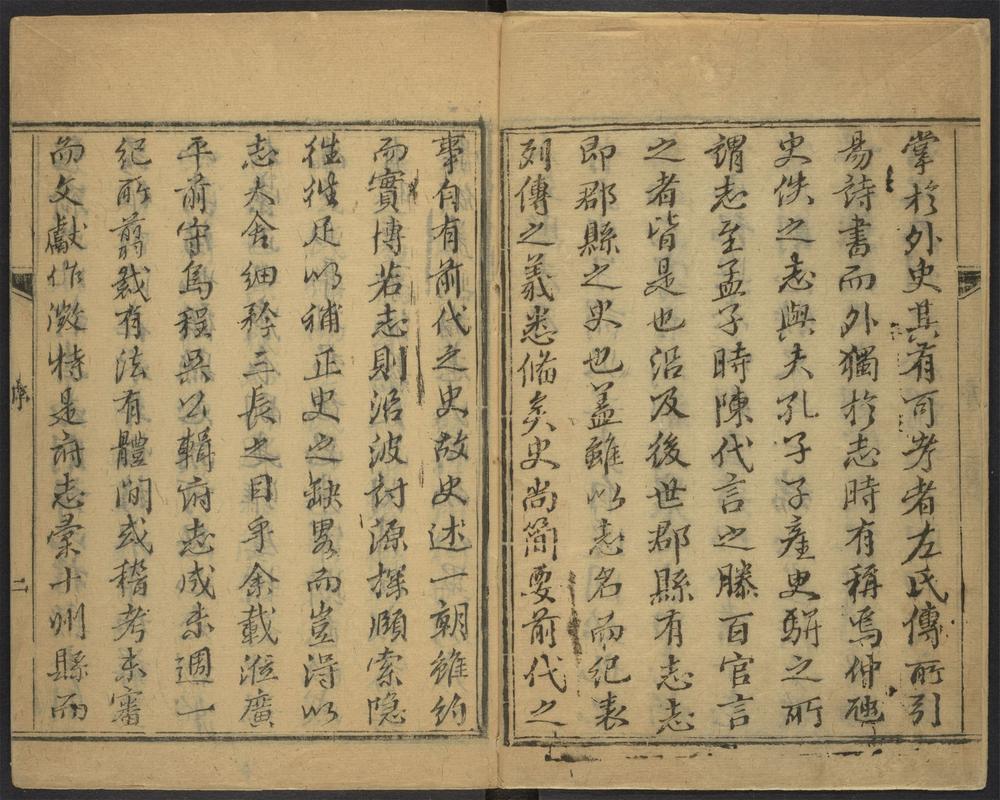 掌於外史其有可考者左氏傳所引
易詩書而外獨於志時有稱焉仲虺
史佚之志與夫孔子子產史駢之所
謂志至孟子時陳代言之滕百官言
之者皆是也沿及後世郡縣有志志
即郡縣之史也蓋雖以志名而紀表
列傳之義悉俻矣史尚簡要前代之
事自有前代之史故史述一朝雖約
而實博若志則沿波討源探頤索隐
徃徃足以補正史之缺畧而豈得以
志大舍細矜三長之目乎余載涖廣
平前守烏程吳公輯府志成未週一
紀所翦裁有法有體間或稽考未審
而文獻作徵特是府志彚十州縣而
序
二